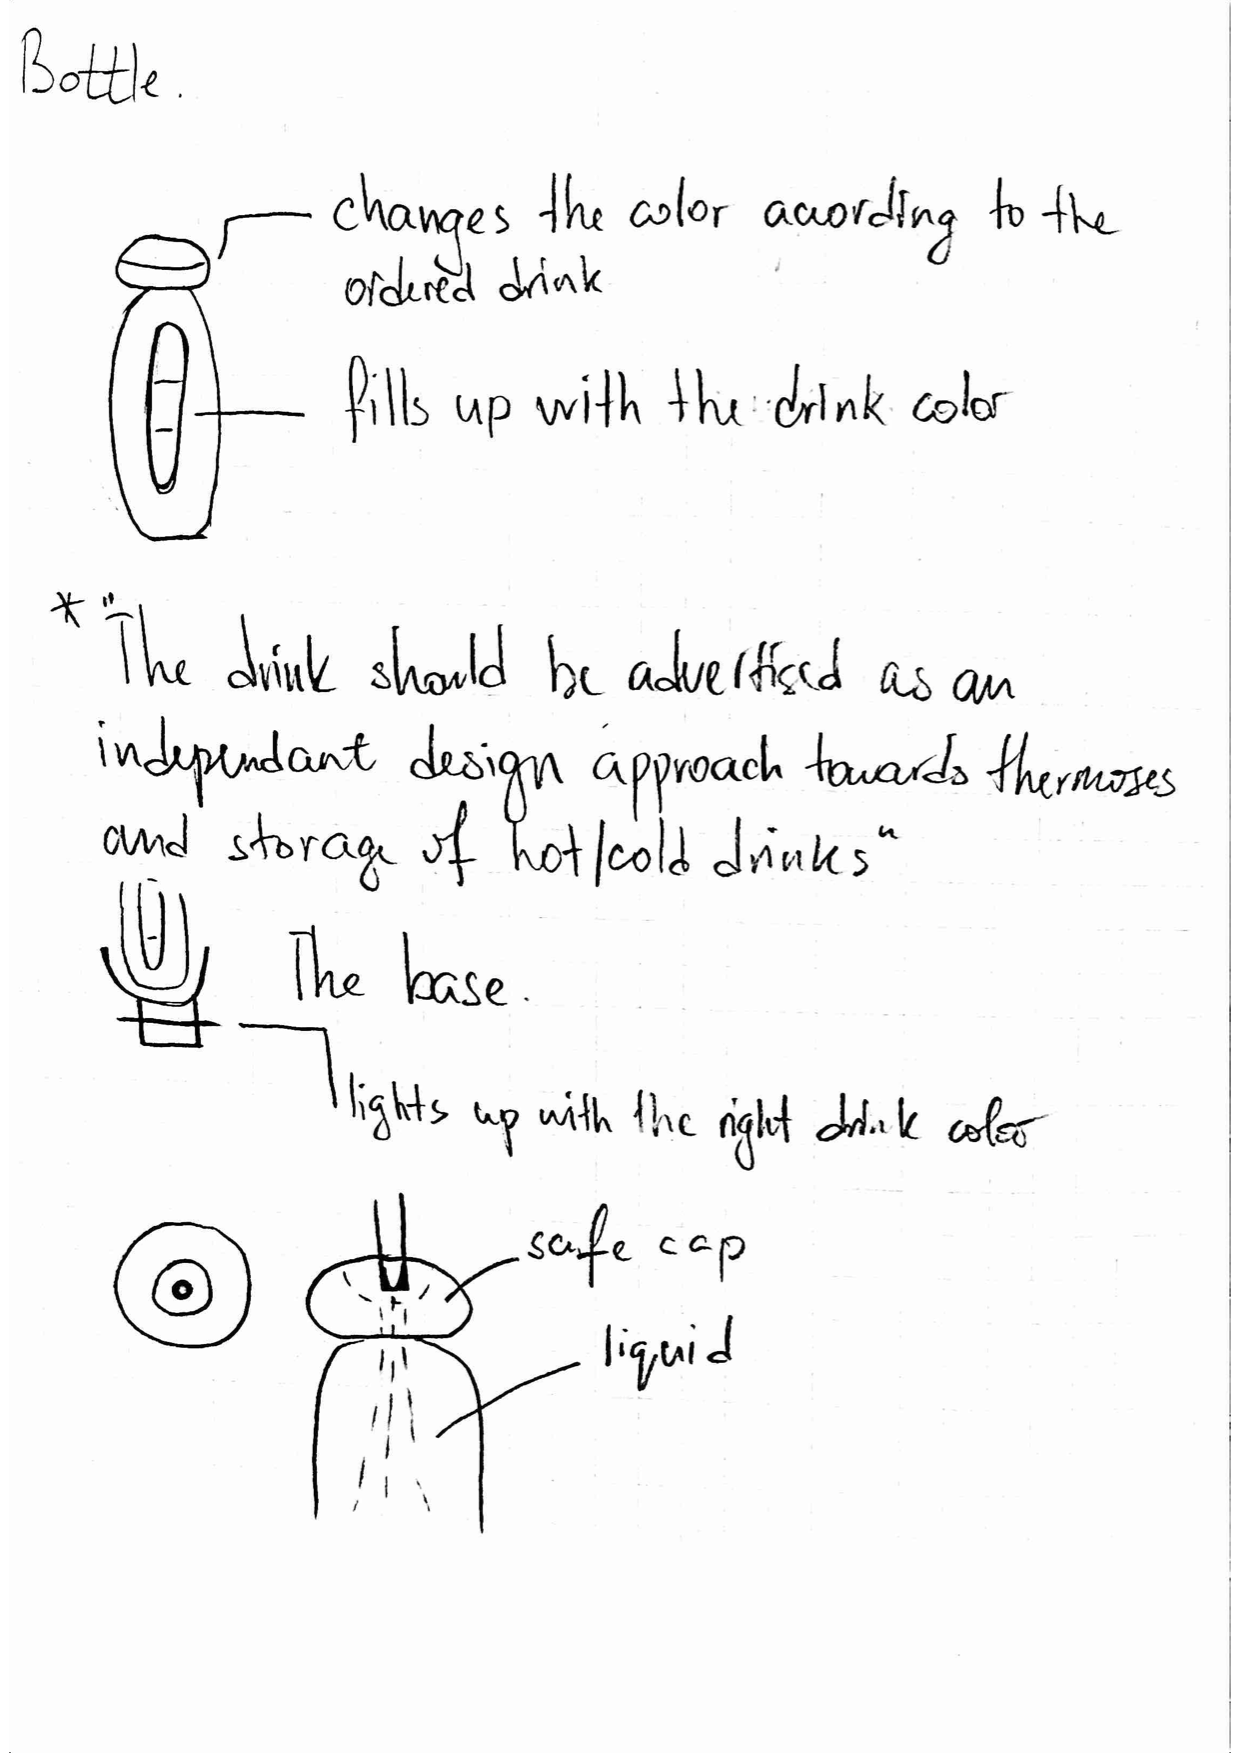 Bottle.
changes the color acuording to the
ordered drink
fills up with the drink color
* "The drink should be advertised as an
independant design approach towards thermoses
and storage of hot/cold drinks"
The base.
lights up with the right drink color
safe cap
liquid